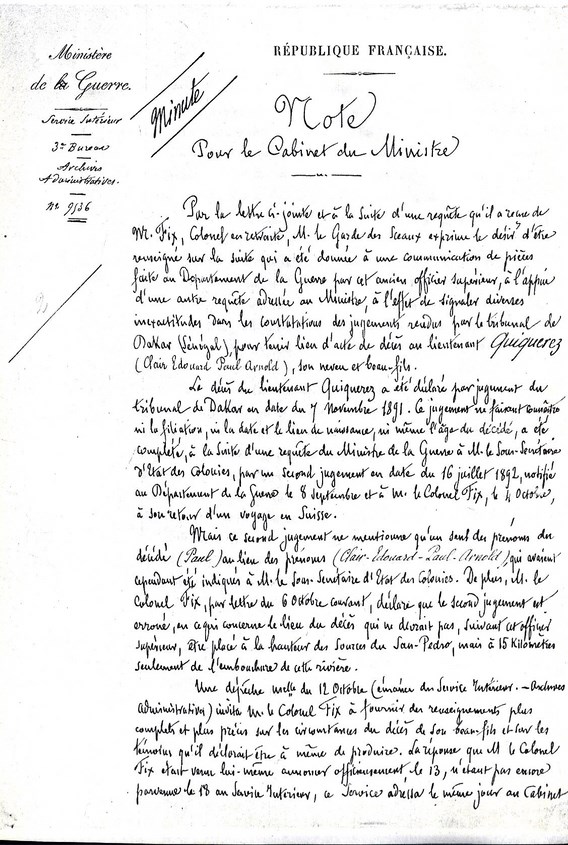 RÉPUBLIQUE FRANÇAISE.
Ministère
de la Guerre.
Service Intérieur
3e Bureau
Archives
Administratives.
No 9536
Minute
Note
Pour le Cabinet du Ministre
Par la lettre ci-jointe et à la suite d'une requête qu'il a reçue de
Mr. Fix, Colonel en retraite, M. le Garde des Sceaux exprime le désir d'être
renseigné sur la suite qui a été donnée à une communication de pièces
faite au Département de la Guerre par cet ancien officier supérieur, à l'appui
d'une autre requête adressée au Ministre, à l'effet de signaler diverses
inexactitudes dans les constatations des jugements rendus par le tribunal de
Dakar (Sénégal) pour tenir lieu d'acte de décès au lieutenant Quiquerez
(Clair Edouard Paul Arnold), son neveu et beau-fils.
Le décès du lieutenant Quiquerez a été déclaré par jugement du
tribunal de Dakar en date du 7 Novembre 1891. Ce jugement ne faisant connaître
ni la filiation, ni la date et le lieu de naissance, ni même l'âge du décédé, a été
complété, à la suite d'une requête du Ministre de la Guerre à M. le Sous-Secrétaire
d'Etat des Colonies, par un second jugement en date du 16 juillet 1892, notifié
au Département de la Guerre le 8 septembre et à M. le Colonel Fix, le 4 Octobre,
à son retour d'un voyage en Suisse.
Mais ce second jugement ne mentionne qu'un seul des prénoms du
décédé (Paul) au lieu des prénoms (Clair-Edouard-Paul-Arnold) qui avaient
cependant été indiqués à M. le Sous-Secrétaire d'Etat des Colonies. De plus, M. le
Colonel Fix, par lettre du 6 Octobre courant, déclare que le second jugement est
erroné, en ce qui concerne le lieu du décès qui ne devrait pas, suivant cet officier
supérieur, être placé à la hauteur des sources du San-Pedro, mais à 15 Kilomètres
seulement de l'embouchure de cette rivière.
Une dépêche melle du 12 Octobre (émanée du Service Intérieur. – Archives
Administratives) invita M. le Colonel Fix à fournir des renseignements plus
complets et plus précis sur les circonstances du décès de son beau-fils et sur les
témoins qu'il déclarait être à même de produire. La réponse que M. le Colonel
Fix était venu lui-même annoncer officieusement le 13, n'étant pas encore
parvenue le 18 au Service Intérieur, ce Service adressa le même jour au Cabinet